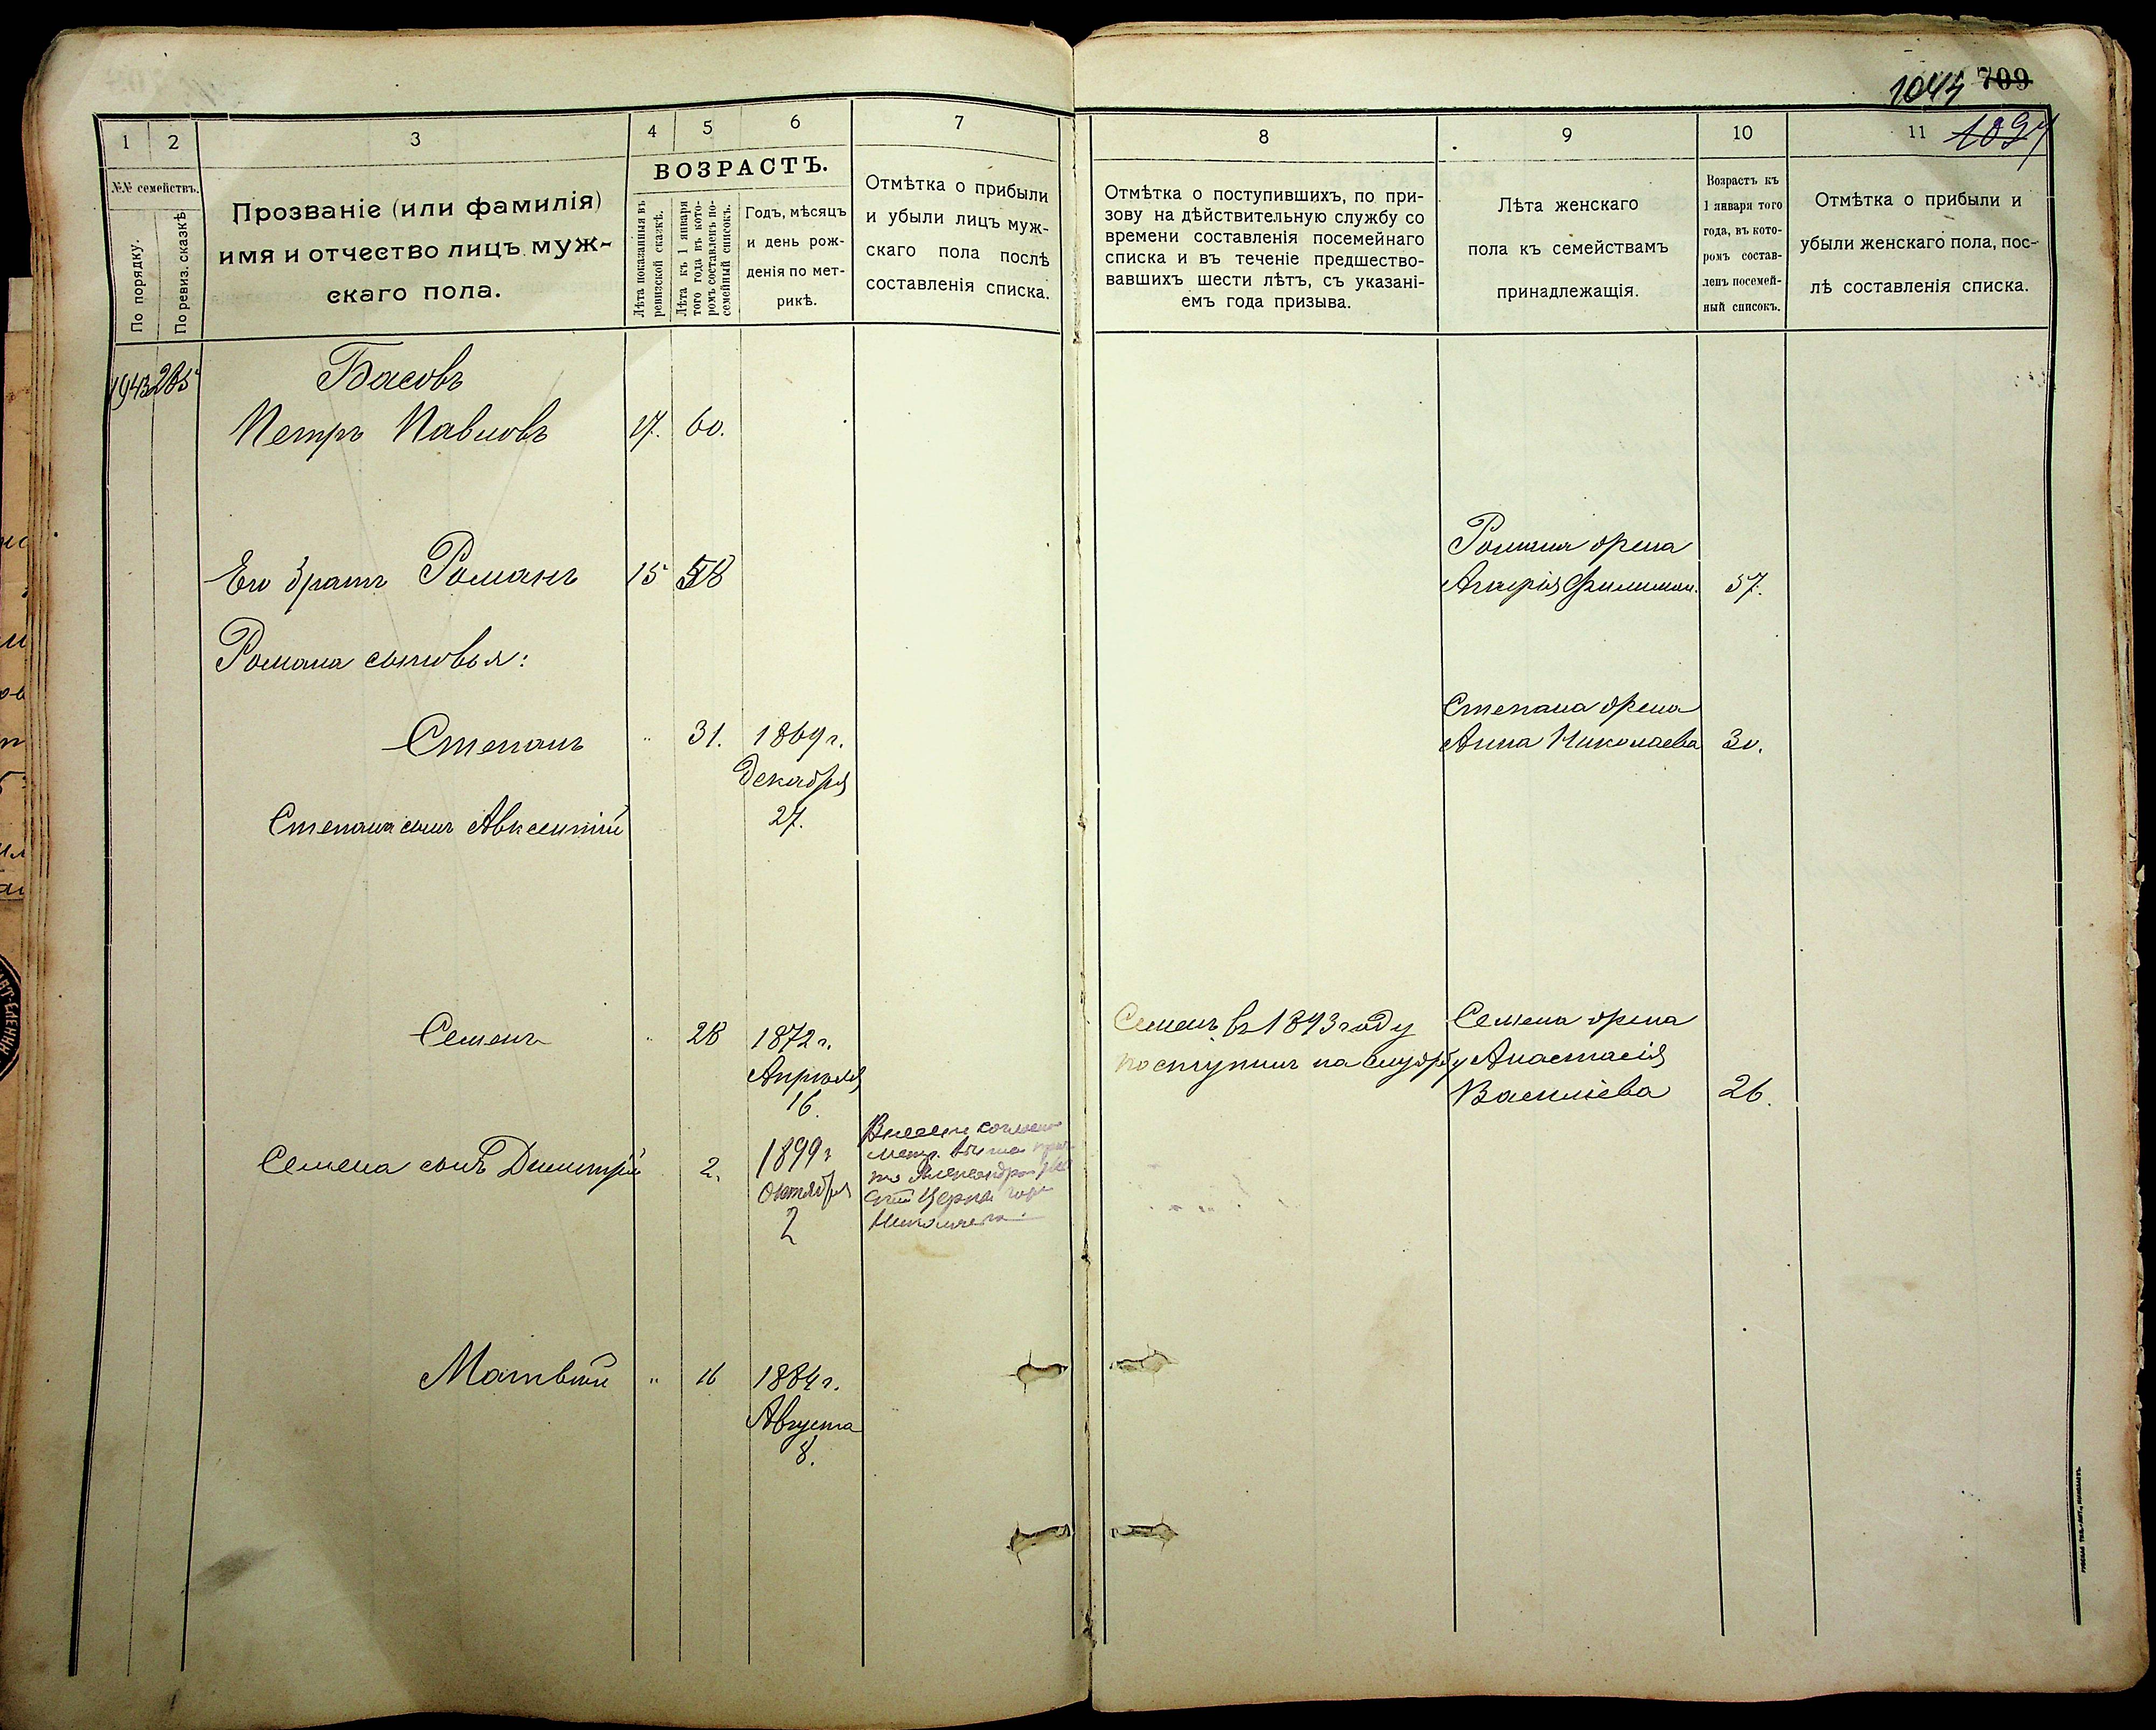 1044 709
1097
1
2
3
4
5
6
7
8
9
10
11
№№ семействъ.
По порядку.
По ревиз. сказкѣ
Прозваніе (или фамилія)
имя и отчество лицъ муж-
скаго пола.
ВОЗРАСТЪ.
Лѣта показанныя въ
ревизской сказкѣ.
Лѣта къ 1 января
того года въ кото-
ромъ составленъ по-
семейный списокъ.
Годъ, мѣсяцъ
и день рож-
денія по мет-
рикѣ.
Отмѣтка о прибыли
и убыли лицъ муж-
скаго пола послѣ
составленія списка.
Отмѣтка о поступившихъ, по при-
зову на дѣйствительную службу со
времени составленія посемейнаго
списка и въ теченіе предшество-
вавшихъ шести лѣтъ, съ указані-
емъ года призыва.
Лѣта женскаго
пола къ семействамъ
принадлежащія.
Возрастъ къ
1 января того
года, въ кото-
ромъ состав-
ленъ посемей-
ный списокъ.
Отмѣтка о прибыли и
убыли женскаго пола, пос-
лѣ составленія списка.
1943 285 Басовъ
Петръ Павловъ 17. 60.
Романа жена
Его братъ Романъ 15 58
57.
Романа сыновья:
Степана жена
Степанъ " 31. 1869 г.
Анна Николаева 30.
Декабря
27.
Степана сынъ Авксентій
Семенъ " 28 1872 г.
Апрѣля
16.
Семенъ въ 1893 году
поступилъ на службу
Семена жена
Анастасія
Василіева 26.
Семена сынъ Димитрій 2. 1899 г
Октября
2
Внесенъ
метр.
Матвѣй " 16 1884 г.
Августа
8.